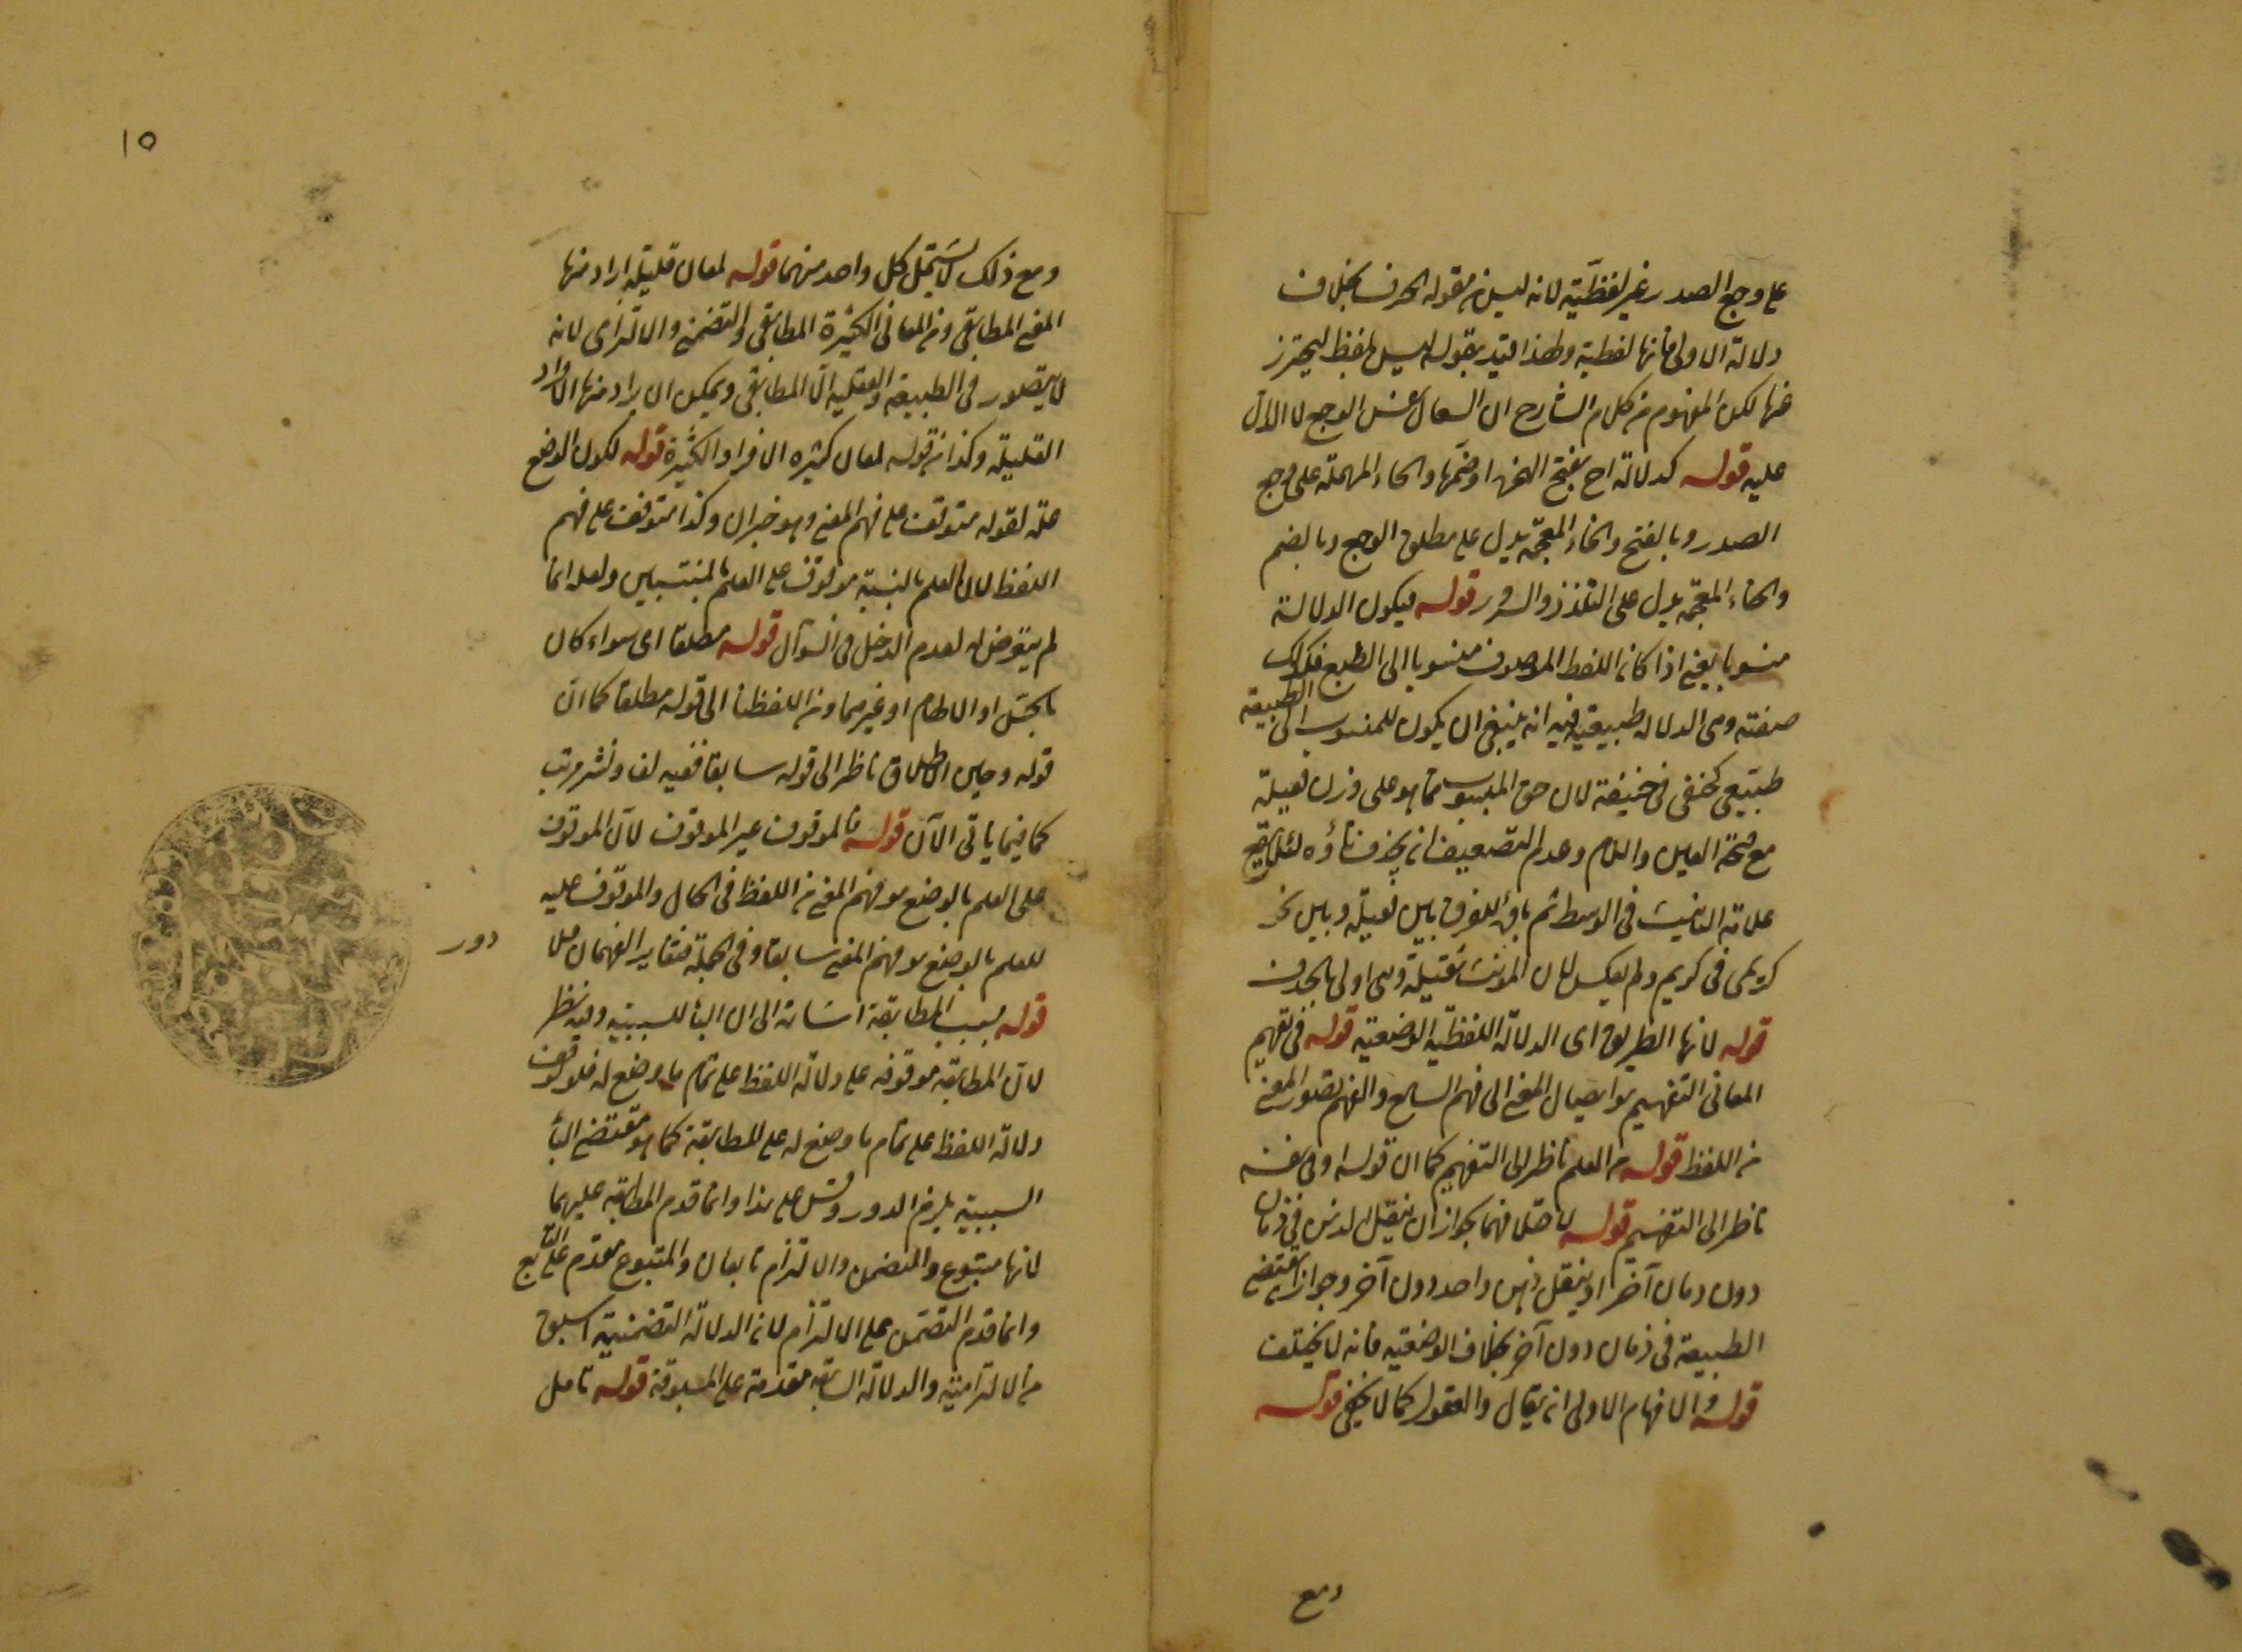 على وجع الصدر غير لفظية لانه ليس من مقولة الحرف بخلاف
دلالة الاولى فانها لفظية ولهذا قيد بقوله ليس بلفظ ليحترز
عنها لكن المفهوم من كلام الشارح ان السعال عنده الوجع لا الدال
عليه قوله كدلالة اح بفتح الهمزة او ضمها والحاء المهملة على وجع
الصدر وبالفتح والخاء المعجمة يدل على مطلق الوجع وبالضم
والخاء المعجمة يدل على التلذذ والسرور قوله فيكون الدلالة
منسوبا يعنى اذا كان اللفظ الموصوف منسوبا الى الطبع فكذلك
صفته وهى الدلالة طبيعية فيه انه ينبغى ان يكون للمنسوب الى الطبيعة
طبيعى كحنفى فى حنيفة لان حق المنسوب مما هو على وزن فعيلة
مع صحة العين واللام وعدم التضعيف ان يحذف تاؤه لئلا يقع
علامة التانيث فى الوسط ثم ياؤه للفرق بين فعيلة وبين نحو
كريمى فى كريم ولم يعكس لان المونث ثقيلة وهى اولى بالحذف
قوله لانها الطريق اى الدلالة اللفظية الوضعية قوله فى تفهيم
المعانى التفهيم هو ايصال المعنى الى فهم السامع والفهم تصور المعنى
من اللفظ قوله من العلم ناظر الى التفهيم كما ان قوله اوفى نفسه
ناظر الى التفهيم قوله لاختلافهما بجواز ان ينتقل الذهن فى زمان
دون زمان آخر او ينتقل ذهن واحد دون آخر وجواز ان يقتضى
الطبيعة فى زمان دون آخر بخلاف الوضعية فانه لا يختلف
قوله والافهام الاولى ان يقال والعقول كما لا يخفى قوله
ومع
١٥
ومع ذلك لا يشتمل كل واحد منهما قوله لمعان قليلة اراد منها
المعنى المطابقى ومن المعانى الكثيرة المطابقى والتضمنى والالتزامى لانه
لا يتصور فى الطبيعية والعقلية الا المطابقى ويمكن ان يراد منها الافراد
القليلة وكذا من قوله لمعان كثيره الافراد الكثيرة قوله لكون الوضع
علة لقوله متوقف على فهم المعنى وهو خبر ان وكذا متوقف على فهم
اللفظ لان العلم بالنسبة موقوف على العلم بالمنتسبين ولعله انما
لم يتعرض له لعدم الدخل فى السؤال قوله مطلقا اى سواء كان
بالجنس او الالهام او غيرهما ومن اللفظ ناظر الى قوله مطلقا كما ان
قوله وحين الاطلاق ناظر الى قوله سابقا ففيه لف ونشر مرتب
كما فيما ياتى الآن قوله فالموقوف غير الموقوف لان الموقوف
على العلم بالوضع هو فهم المعنى من اللفظ فى الحال والموقوف عليه
للعلم بالوضع هو فهم المعنى سابقا وفى الجملة فتغاير الفهمان فلا
دور
قوله بسبب المطابقة اشارة الى ان الباء للسببية وفيه نظر
لان المطابقة موقوفة على دلالة اللفظ على تمام ما وضع له فلو توقف
دلالة اللفظ على تمام ما وضع له على المطابقة كما هو مقتضى الباء
السببية يلزم الدور وقس على هذا وانما قدم المطابقة عليهما
لانها متبوع والتضمن والالتزام تابعان والمتبوع مقدم على التابع
وانما قدم التضمن على الالتزام لان الدلالة التضمنية اسبق
من الالتزامية والدلالة السابقة مقدمة على المسبوقة قوله تامل